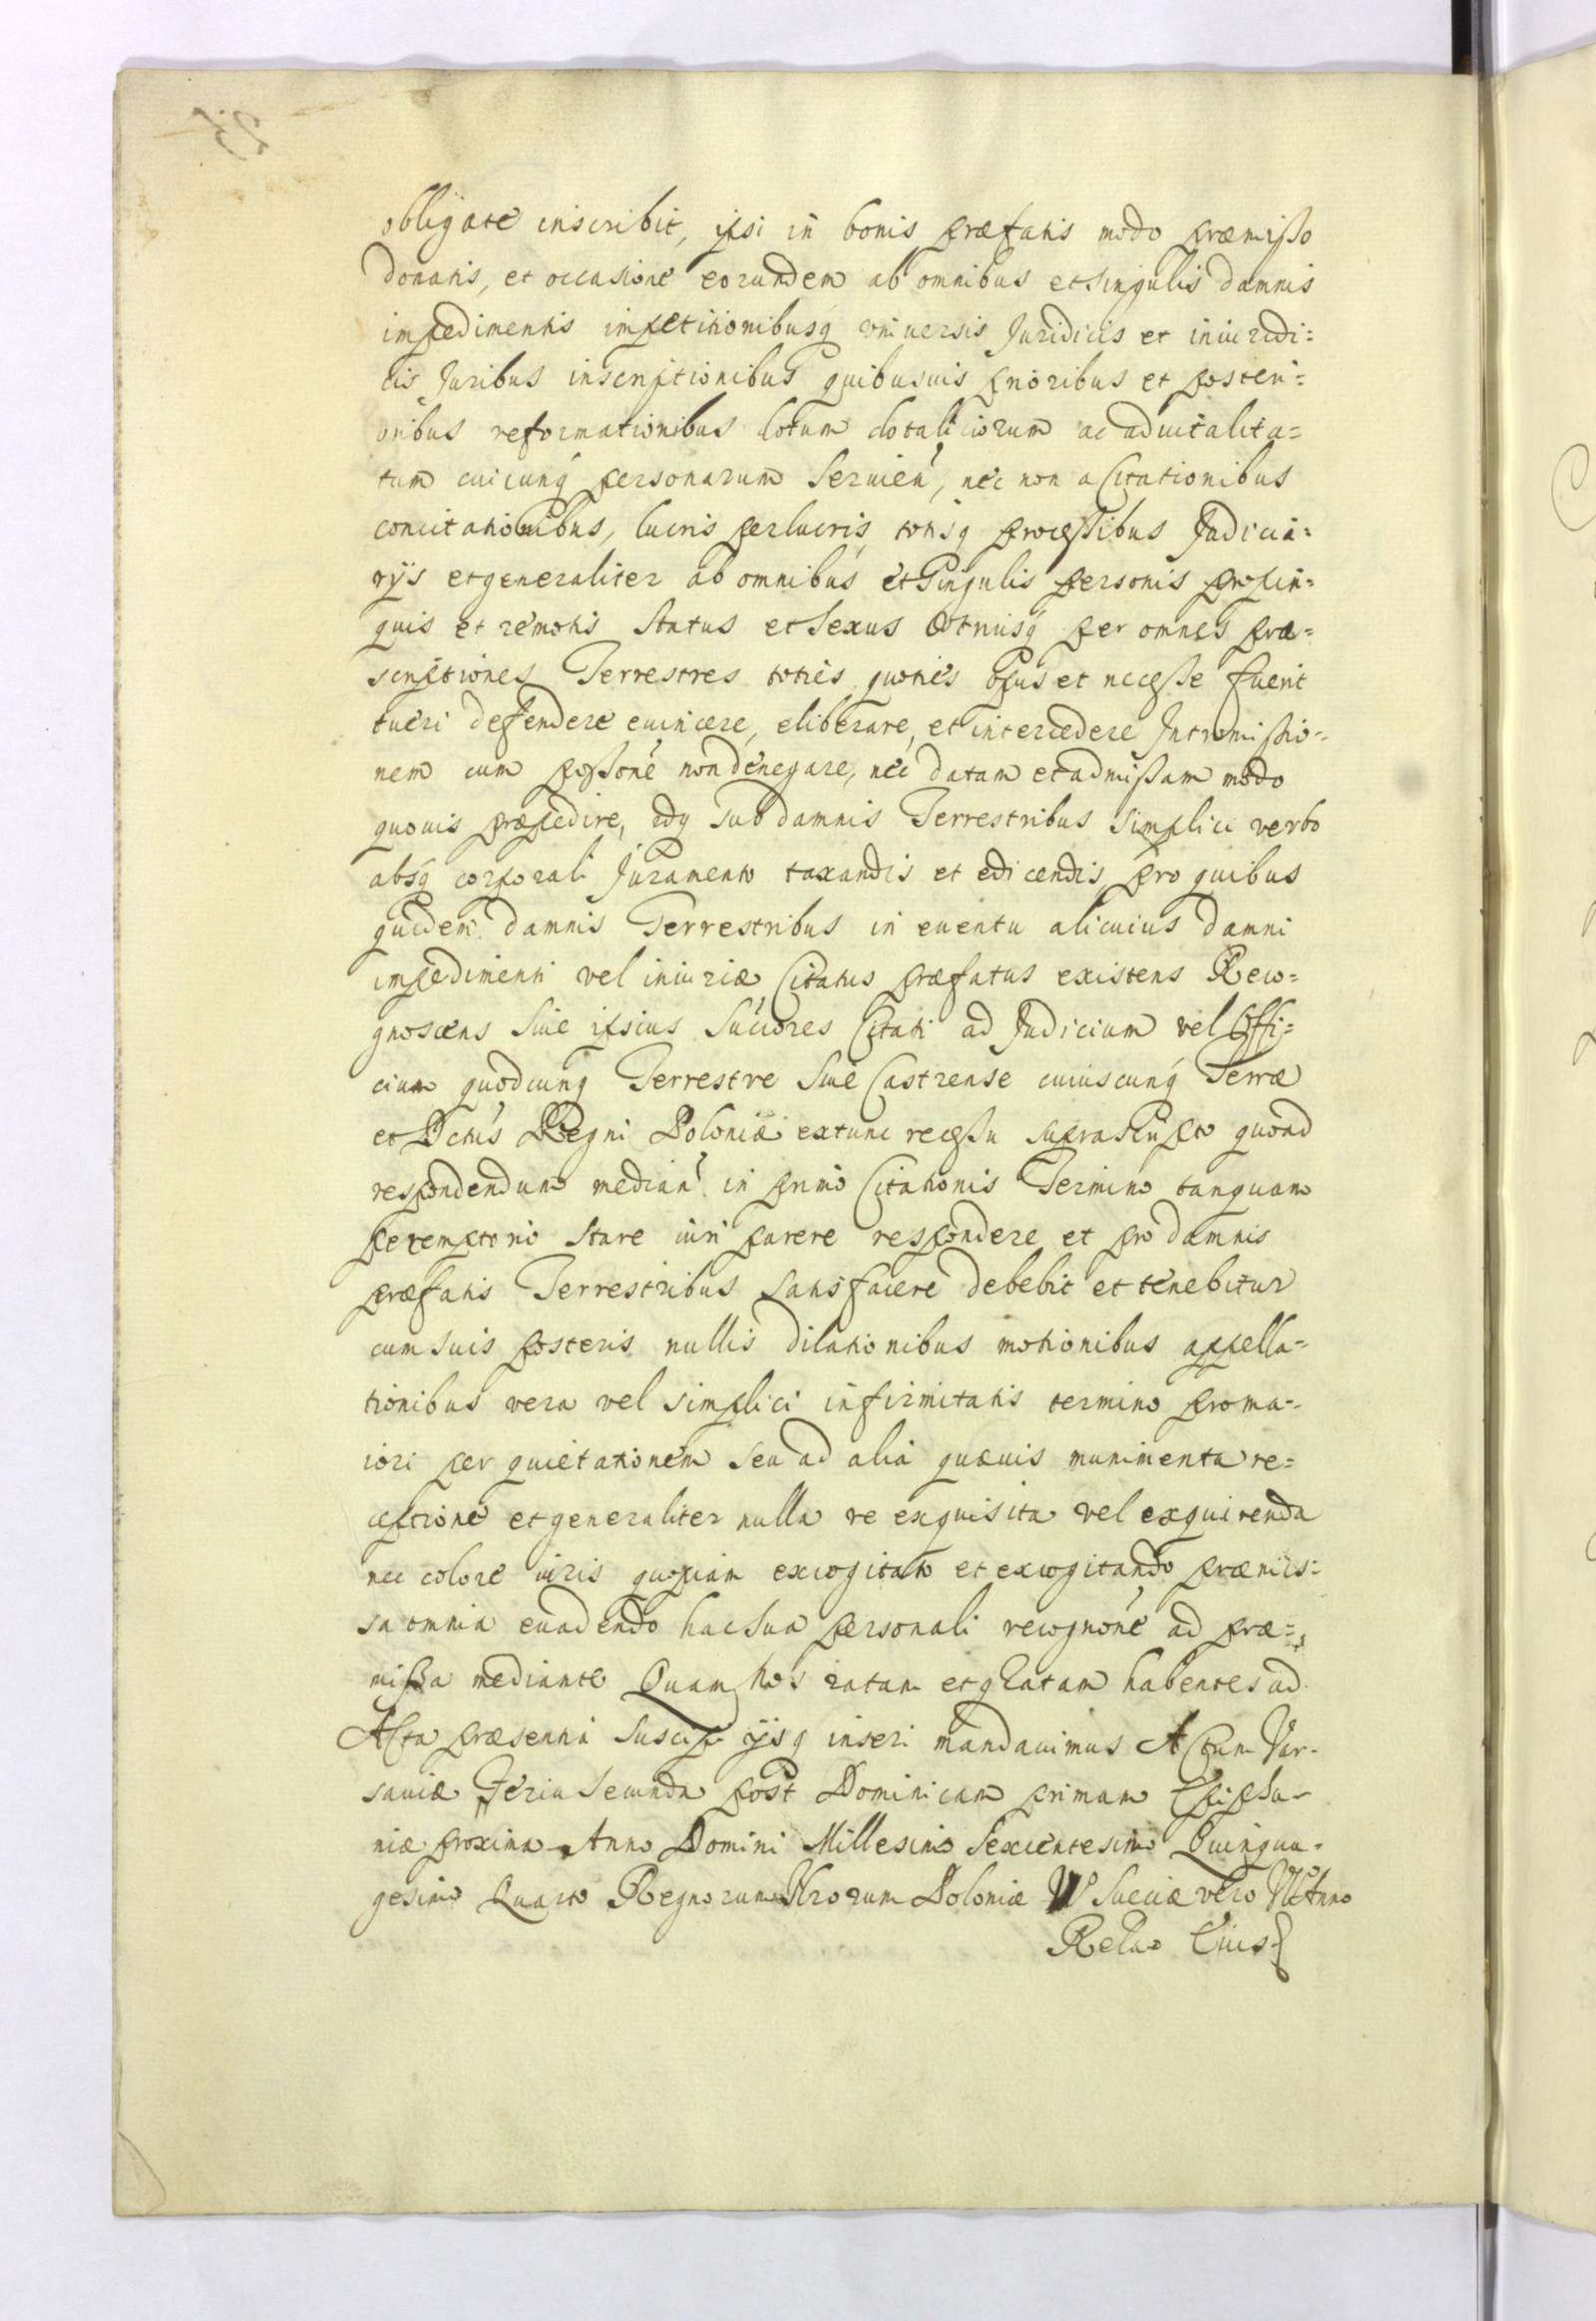 obligare inscribit, ipsi in bonis præfatis modo præmisso
donatis, et occasione eorundem ab omnibus et singulis damnis
impedimentis impetitionibusq vniuersis Juridicis et iniuridi=
cis Juribus inscriptionibus quibusuis prioribus et posteri=
oribus reformationibus dotum dotaliciorum ac aduitalita=
tum cuicunq personarum seruien, nec non a Citationibus
concitationibus, lucris perlucris, totisq processibus Judicia=
rÿs et generaliter ab omnibus et singulis personis propin=
quis et remotis status et sexus vtriusq per omnes præ=
scriptiones Terrestres toties quoties opus et necesse fuerit
tueri defendere euincere, eliberare, et intercedere Intromissio=
nem cum possone non denegare, nec datam et admissam modo
quouis præpedire, idq sub damnis Terrestribus simplici verbo
absq corporali Juramento taxandis et edicendis pro quibus
quidem damnis Terrestribus in euentu alicuius damni
impedimenti vel iniuriæ Citatus præfatus existens Reco=
gnoscens siue ipsius succores Citati ad Judicium vel Offi=
cium quodcunq Terrestre siue Castrense cuiuscunq Terræ
et Dctus Regni Poloniæ extunc recessu suprascripto quoad
respondendum median in primo Citationis Termino tanquam
peremptorio stare iuri parere respondere et pro damnis
præfatis Terrestribus satisfacere debebit et tenebitur
cum suis posteris nullis dilationibus motionibus appella=
tionibus vera vel simplici infirmitatis termino pro ma=
iori per quietationem seu ad alia quæuis munimenta re=
ceptione et generaliter nulla re exquisita vel exquirenda
nec colore iuris quopiam excogitato et excogitando præmis=
sa omnia euadendo hac sua personali recognone ad præ=
missa mediante Quam Nos ratam et gratam habentes ad
Acta præsentia suscipi ÿsq inseri mandauimus Actum Var=
sauiæ Feria secunda post Dominicam primam Epipha=
niæ proxima Anno Domini Millesimo Sexcentesimo Quinqua=
gesimo Quarto Regnorum Nrorum Poloniæ VI Sueciæ vero VII Anno
Relao Eius